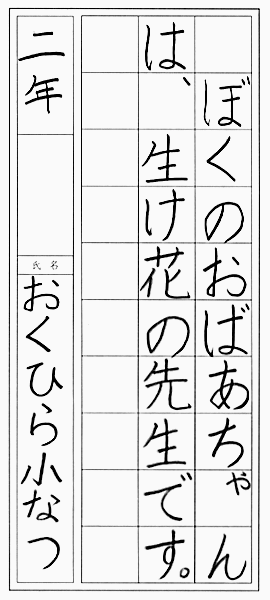 ぼくのおばあちゃん
は、生け花の先生です。
二年
氏名
おくひら小なつ